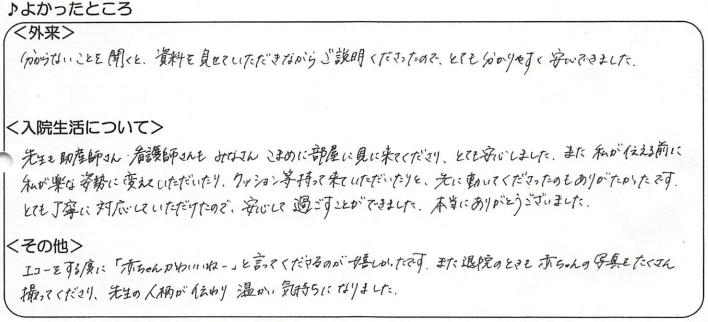 ♪よかったところ
<外来>
分からないことを聞くと、資料を見せていただきながらご説明くださったので、とても分かりやすく安心できました。
<入院生活について>
先生も助産師さん・看護師さんもみなさんこまめに部屋に見に来てくださり、とても安心しました。また私が伝える前に
私が楽な姿勢に変えていただいたり、クッション等持って来ていただいたりと、先に動いてくださったのもありがたかったです。
とても丁寧に対応していただけたので、安心して過ごすことができました。本当にありがとうございました。
<その他>
エコーをする度に「赤ちゃんかわいいねー」と言ってくださるのが嬉しかったです。また退院のときも赤ちゃんの写真をたくさん
撮ってくださり、先生の人柄が伝わり温かい気持ちになりました。